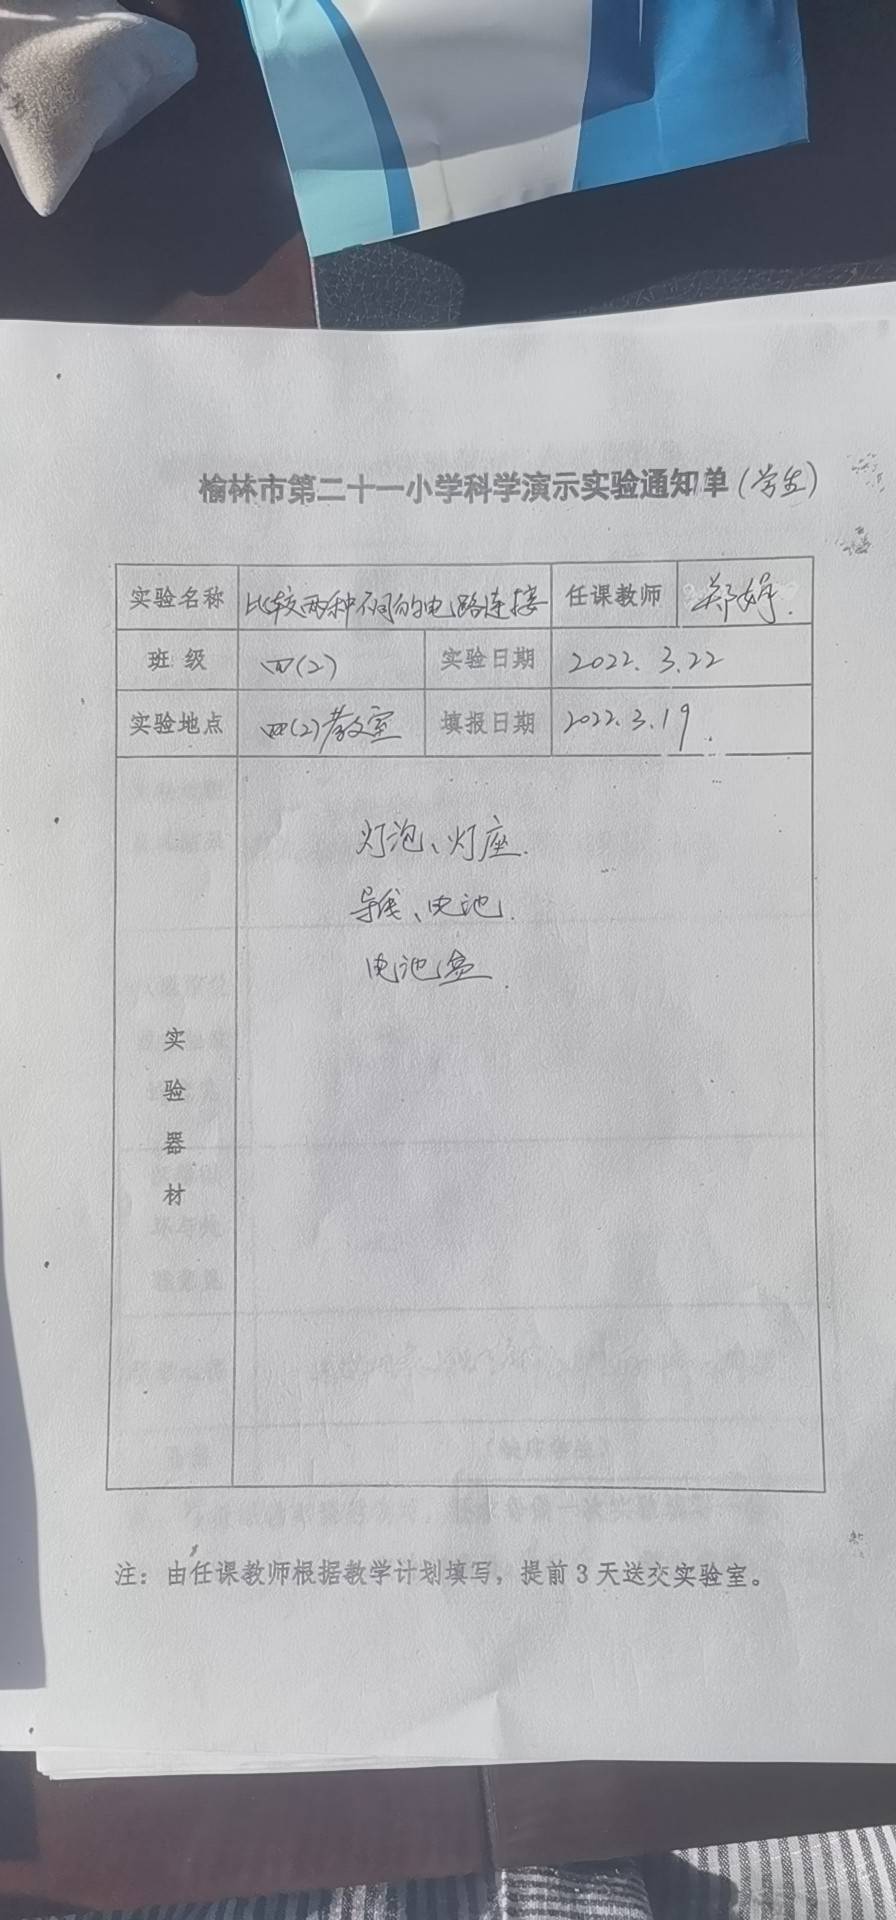 榆林市第二十一小学科学演示实验通知单（学生）
实验名称 比较两种不同的电路连接 任课教师 郑娟.
班级 四(2) 实验日期 2022.3.22
实验地点 四(2)教室 填报日期 2022.3.19.
灯泡、灯座.
导线、电池.
电池盒.
实
验
器
材
注：由任课教师根据教学计划填写，提前3天送交实验室。